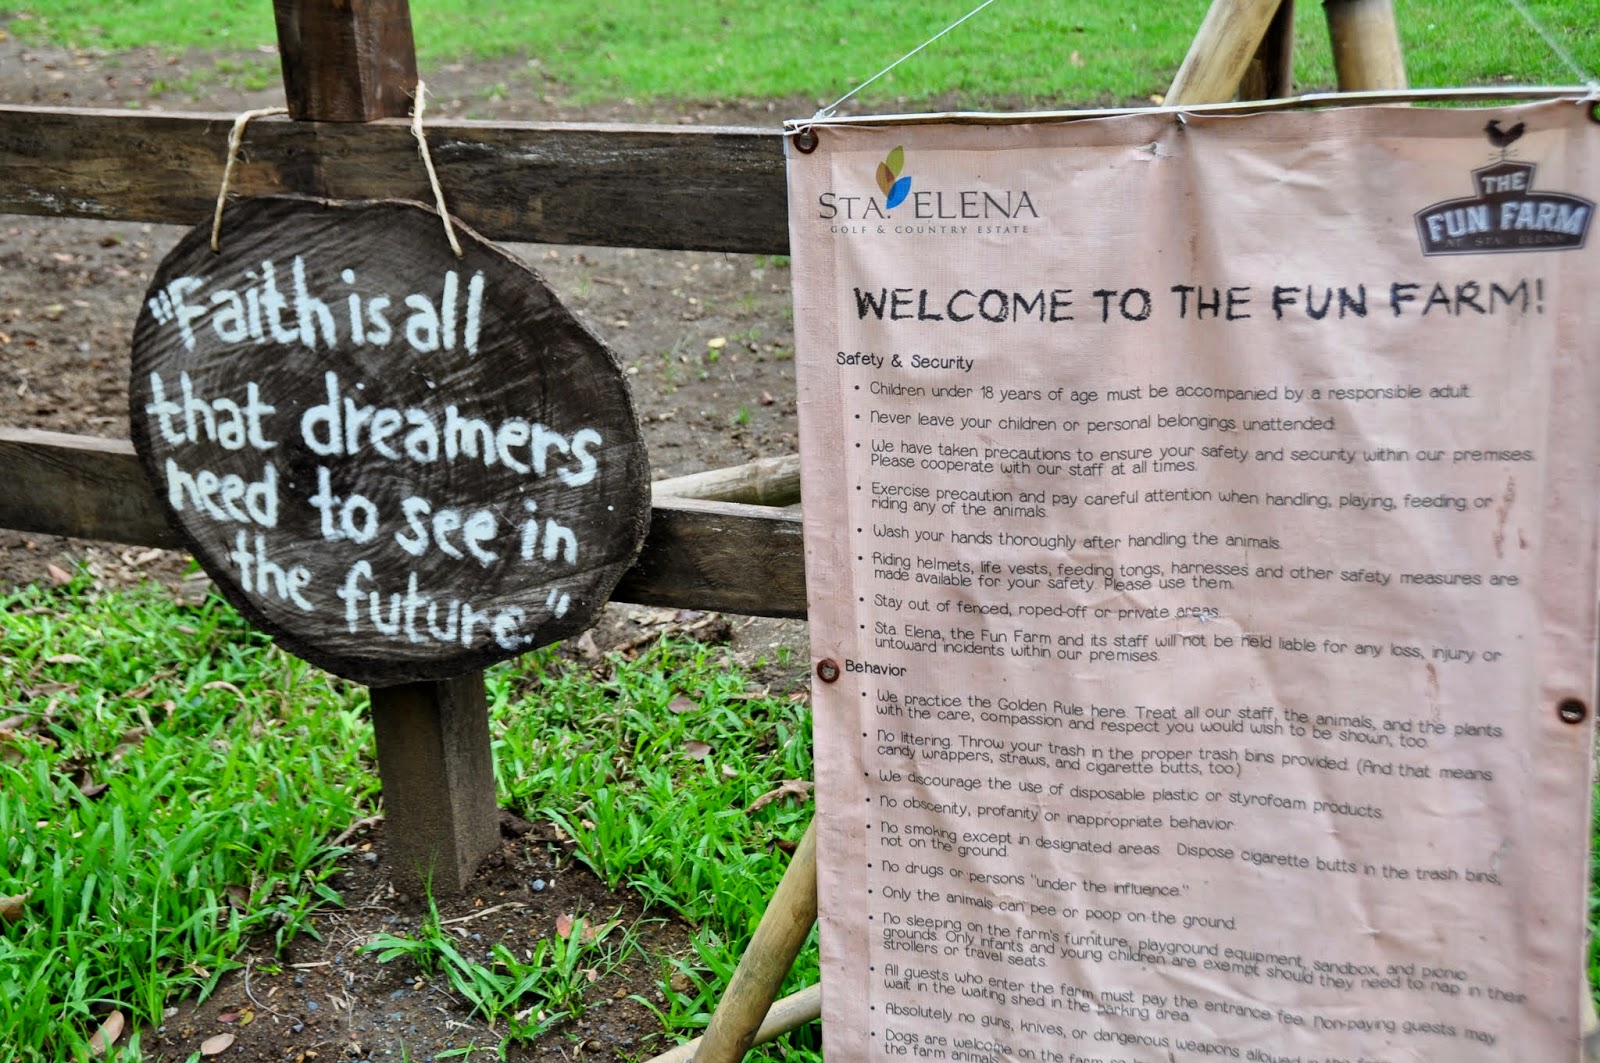 "Faith is all
that dreamers
need to see in
the future."
STA. ELENA
GOLF & COUNTRY ESTATE
THE
FUN FARM
AT STA. ELENA
WELCOME TO THE FUN FARM!
Safety & Security
• Children under 18 years of age must be accompanied by a responsible adult.
• Never leave your children or personal belongings unattended.
• We have taken precautions to ensure your safety and security within our premises.
Please cooperate with our staff at all times.
• Exercise precaution and pay careful attention when handling, playing, feeding or
riding any of the animals.
• Wash your hands thoroughly after handling the animals.
• Riding helmets, life vests, feeding tongs, harnesses and other safety measures are
made available for your safety. Please use them.
• Stay out of fenced, roped-off or private areas.
• Sta. Elena, the Fun Farm and its staff will not be held liable for any loss, injury or
untoward incidents within our premises.
Behavior
• We practice the Golden Rule here. Treat all our staff, the animals, and the plants
with the care, compassion and respect you would wish to be shown, too.
• No littering. Throw your trash in the proper trash bins provided. (And that means
candy wrappers, straws, and cigarette butts, too.)
• We discourage the use of disposable plastic or styrofoam products.
• No obscenity, profanity or inappropriate behavior.
• No smoking except in designated areas. Dispose cigarette butts in the trash bins,
not on the ground.
• No drugs or persons "under the influence."
• Only the animals can pee or poop on the ground.
• No sleeping on the farm's furniture, playground equipment, sandbox, and picnic
grounds. Only infants and young children are exempt should they need to nap in their
strollers or travel seats.
• All guests who enter the farm must pay the entrance fee. Non-paying guests may
wait in the waiting shed in the parking area.
• Absolutely no guns, knives, or dangerous weapons allowed in the
• Dogs are welcome on the farm so
the farm animals.